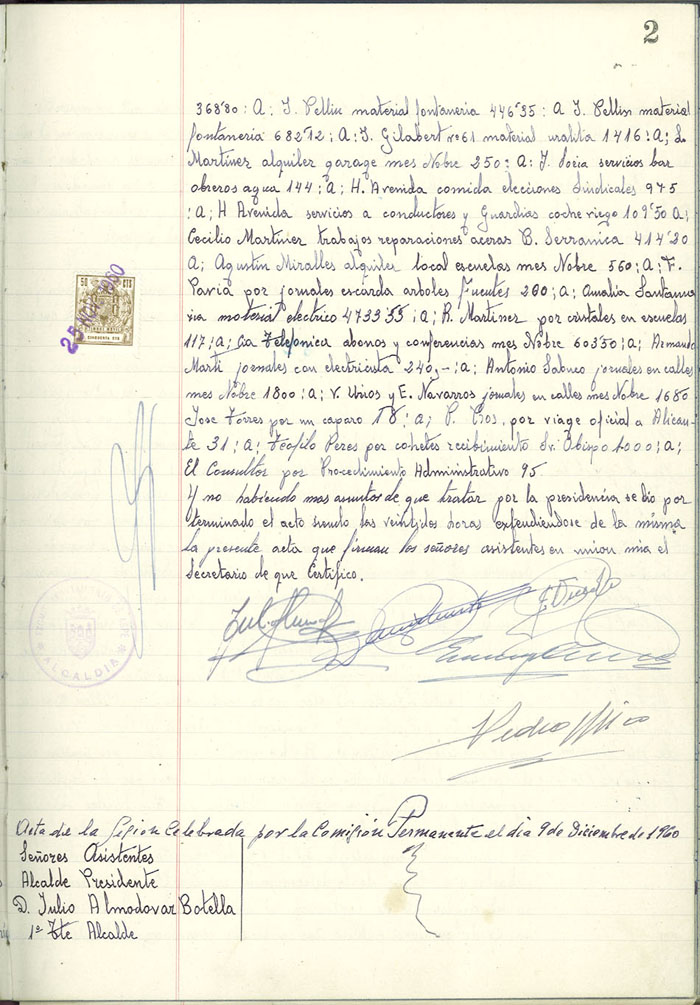 2
36880: A: J. Pellin material fontaneria 446'35: A J. Pellin material
fontaneria 68212; A; J. Gilabert nº61 material uralita 1416: A; L.
Martinez alquiler garage mes Nobre 250: A: J. Soria servicios bar
obreros agua 144; A; H. Avenida comida elecciones Sindicales 975
:A; H Avenida servicios a conductores y Guardias coche riego 109'50 A;
Cecilio Martinez trabajos reparaciones aceras B. Serranica 414'20
A; Agustin Miralles alquiler local escuelas mes Nobre 560: A; F.
Pavia por jornales escarda arboles Fuentes 260; A; Amalia Santama
ria material electrico 4733'55; A; R. Martinez por cristales en escuelas
117; A; Cia Telefonica abonos y conferencias mes Nobre 603'50; A; Armando
Marti jornales con electricista 240,-: A; Antonio Sabuco jornales en calles
mes Nobre 1800: A; V. Urios y E. Navarros jornales en calles mes Nobre 1680
Jose Torres por un caparo 18: A; P. Cros. por viage oficial a Alican-
te 31; A: Teofilo Peres por cohetes recibimiento Sr. Obispo 1000; A;
El Consultor por Procedimiento Administrativo 95.
Y no habiendo mas asuntos de que tratar por la presidencia se dio por
terminado el acto siendo las veintidos horas extendiendose de la misma
la presente acta que firman los señores asistentes en union mia el
Secretario de que Certifico.
50 CTS
25 NOV 1960
ALCALDIA
Pedro
Acta de la Sesion Celebrada por la Comisión Permanente el dia 9 de Diciembre de 1960
Señores Asistentes
Alcalde Presidente
D. Julio Almodovar Botella
1º Tte Alcalde